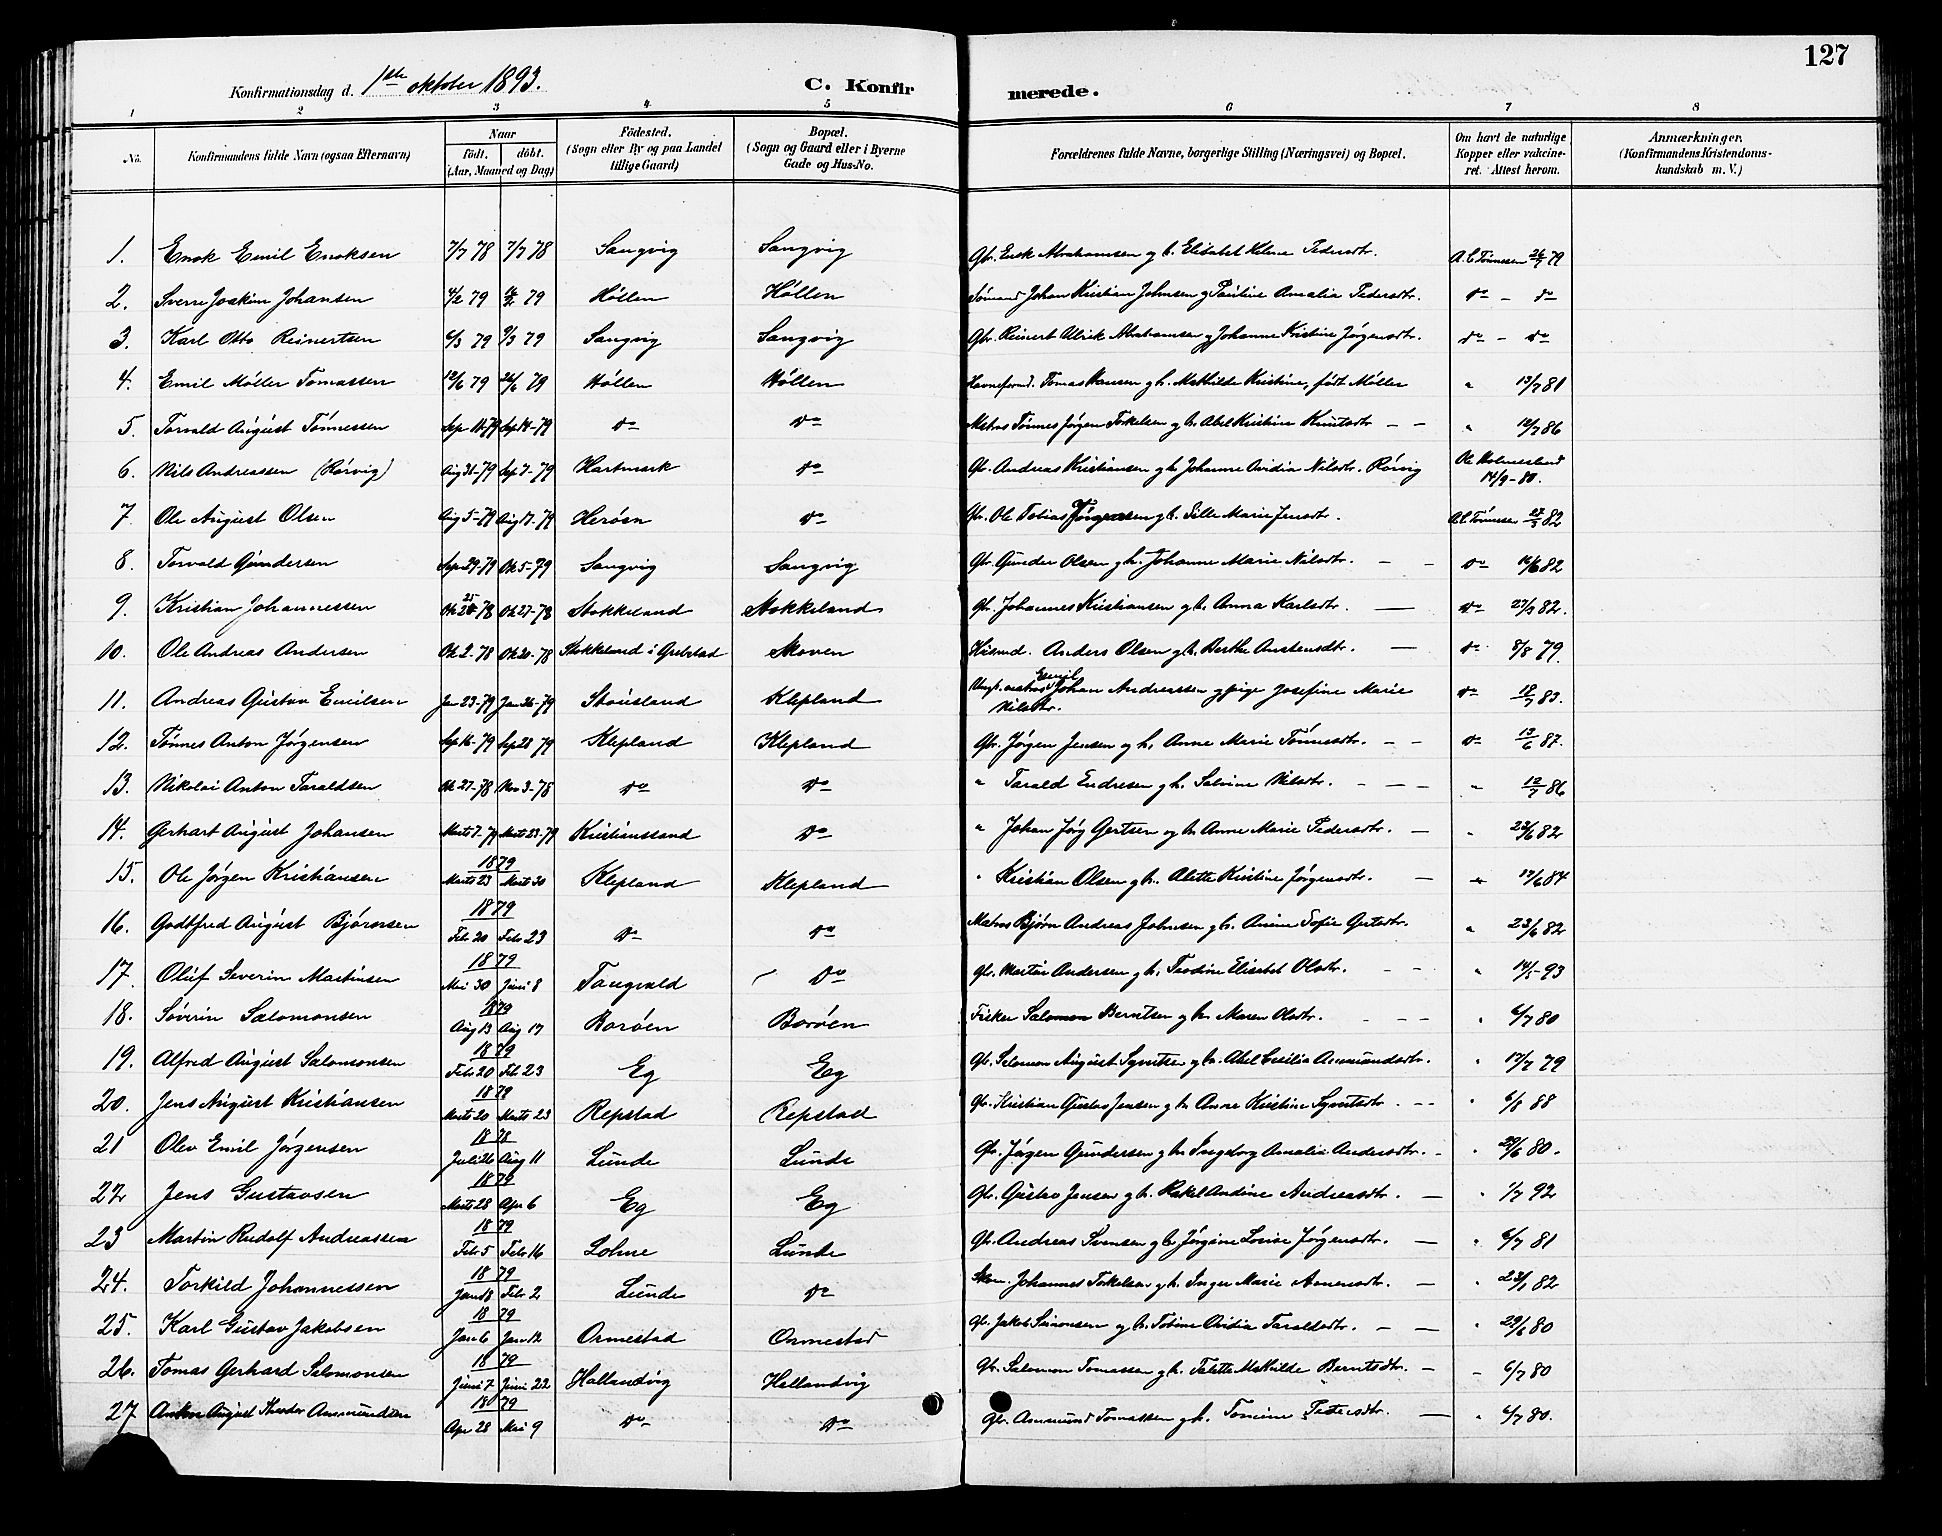 127
Konfirmationsdag d. 1ste oktober 1893. C. Konfirmerede.
1 2 3 4 5 6 7 8
No. Konfirmandens fulde Navn (ogsaa Efternavn) Naar födt. döbt. (Aar, Maaned og Dag) Födested. (Sogn eller By og paa Landet tillige Gaard) Bopæl. (Sogn og Gaard eller i Byerne Gade og Hus-No. Forældrenes fulde Navne, borgerlige Stilling (Næringsvei) og Bopæl. Om havt de naturlige Kopper eller vakcineret. Attest herom. Anmærkninger. (Konfirmandens Kristendomskundskab m. V.)
1. Enok Emil Enoksen 7/7 78 Sangvig Sangvig Gbr. Enok Abrahamsen g h. Elisabet Helene Pedersdtr. A. C. Tönnesen 26/7 79
2. Sverre Joakim Johansen 4/2 79 79 Höllen Höllen Sömand Johan Kristian Johnsen g Pauline Amalia Pedersdtr. do - do
3. Karl Otto Reinertsen 6/3 79 9/3 79 Sangvig Sangvig Gbr. Reinert Ulrik Abrahamsen g Johanne Kristine Jörgensdtr. do - do
4. Emil Möller Tomassen 12/6 79 24/6 79 Höllen Höllen Havneformd. Tomas Hansen g h. Mathilde Kristine, födt Möller " 13/7 81
5. Torvald August Tönnessen Sep 11-79 Sep 14-79 do do Matros Tönnes Jörgen Torkelsen g h. Abel Kristine Knutsdtr. - - " 12/7 86
6. Nils Andreassen (Rörvig) Aug 31-79 Sep 7-79 Hartmark do Gbr. Andreas Kristiansen g h. Johanne Ovidia Nilsdtr. Rörvig Ole Holmesland 14/9-80.
7. Ole August Olsen Aug 5-79 Aug 17-79 Heröen do Gbr. Ole Tobias Jörgensen g h. Sille Marie Jensdtr. A. C. Tönnesen 82
8. Torvald Gundersen Sep 29-79 Ok 5-79 Sangvig Sangvig Gbr. Gunder Olsen g h. Johanne Marie Nilsdtr. - - do 16/6 82
9. Kristian Johannessen Ok 78 Ok 27-78 Stokkeland Stokkeland Gbr. Johannes Kristiansen g h. Anna Karlsdtr. — do 27/3 82.
10. Ole Andreas Andersen Ok 2-78 Ok 20-78 Stokkeland i Grebstad Skoven Husmd. Anders Olsen g h. Berthe Anstensdtr. — do 8/8 79.
11. Andreas Gustav Emilsen Jan 23-79 Jan 26-79 Stousland Klepland Ungk. matros Emil Johan Andreassen g pige Josefine Marie Nilsdtr. do 18/7 83.
12. Tönnes Anton Jörgensen Sep 16-79 Sep 28 79 Klepland Klepland Gbr. Jörgen Jensen og h. Anne Marie Tönnesdtr. - - do 13/6 87.
13. Nikolai Anton Taraldsen Ok 27-78 Nov 3-78 do do " Tarald Endresen g h. Salvine Nilsdtr. - - - " 12/7 86
14. Gerhart August Johansen Marts 7-79 Marts 23-79 Kristianssand do " Johan Jörg Gertsen og h. Anne Marie Pedersdtr. — " 23/6 82
15. Ole Jörgen Kristiansen 1879 Marts 23 Marts 30 Klepland Klepland " Kristian Olsen g h. Alette Kristine Jörgensdtr. — " 17/6 84
16. Godtfred August Björnsen 1879 Febr 20 Febr 23 do do Matros Björn Andreas Johnsen g h. Anine Sofie Gertsdtr. " 23/6 82
17. Oluf Severin Martinsen 1879 Mai 30 Juni 8 Tangvald do Gbr. Martin Andersen g h. Teodine Elisabet Olsdtr. - - " 14/5-93
18. Söverin Salomonsen 1879 Aug 13 Aug 17 Boröen Boröen Fisker Salomon Berntsen g h. Maren Olsdtr. - - - " 6/7 80
19. Alfred August Salomonsen 1879 Febr 20 Feb 23 Eg Eg Gbr. Salomon August Syvertsen g h. Abel Cecilia Aanmundsdtr. " 17/7 79
20. Jens August Kristiansen 1879 Marts 20 Marts 23 Repstad Repstad Gbr. Kristian Gustav Jensen g h Anne Kristine Syvertsdtr. - - " 6/8 88
21 Olev Emil Jörgensen 1878 Juli 26 Aug 11 Lunde Lunde Gbr. Jörgen Gundersen g h Ingeborg Amalia Andersdtr. - " 29/6 80.
22 Jens Gustavsen 1879 Marts 28 Apr 6 Eg Eg Gbr. Gustav Jensen g h. Rakel Andine Andreasdtr. — " 1/7 92
23 Martin Rudolf Andreassen 1879 Febr 5 Febr 16 Lohne Lunde Gbr. Andreas Svensen g h Jörgine Lovise Jörgensdtr. — " 6/7 81
24. Torkild Johannessen 1879 Jan 18 Febr 2 Lunde do Skom. Johannes Torkelsen g h. Inger Marie Asmensdtr. — " 82
25. Karl Gustav Jakobsen 1879 Jan 6 Jan 12 Ormestad Ormestad Gbr. Jakob Simonsen g h. Tobine Ovidia Taraldsdtr. - — " 29/6 80
26. Tomas Gerhard Salomonsen 1879 Juni 7 Juni 22 Hallandvig Hallandvig Gbr. Salomon Tomassen g h. Talette Mathilde Berntsdtr. — " 6/7 80
27 Anton August Theodor Aanmundsen 1879 Apr 28 Mai 9 do do Gbr. Aanmund Tomassen g h. Tomine Pedersdtr. — " 6/7 80.